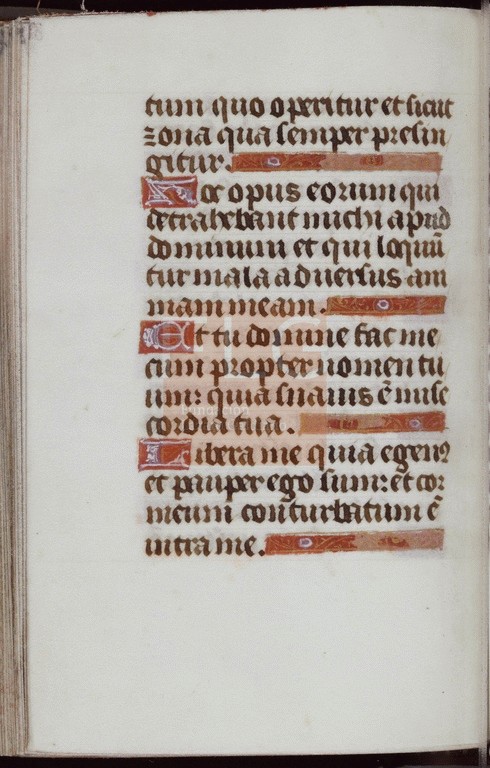 tum quo operitur et sicut
zona qua semper precin
gitur.
Hoc opus eorum qui
detrahebant michi apud
dominum et qui loquū
tur mala adversus ani
mam meam.
Et tu domine fac me
cum propter nomen tu
um: quia suavis ē mise
cordia tua.
Libera me quia egenꝰ
et pauper ego sum: et cor
meum conturbatum ē
intra me.